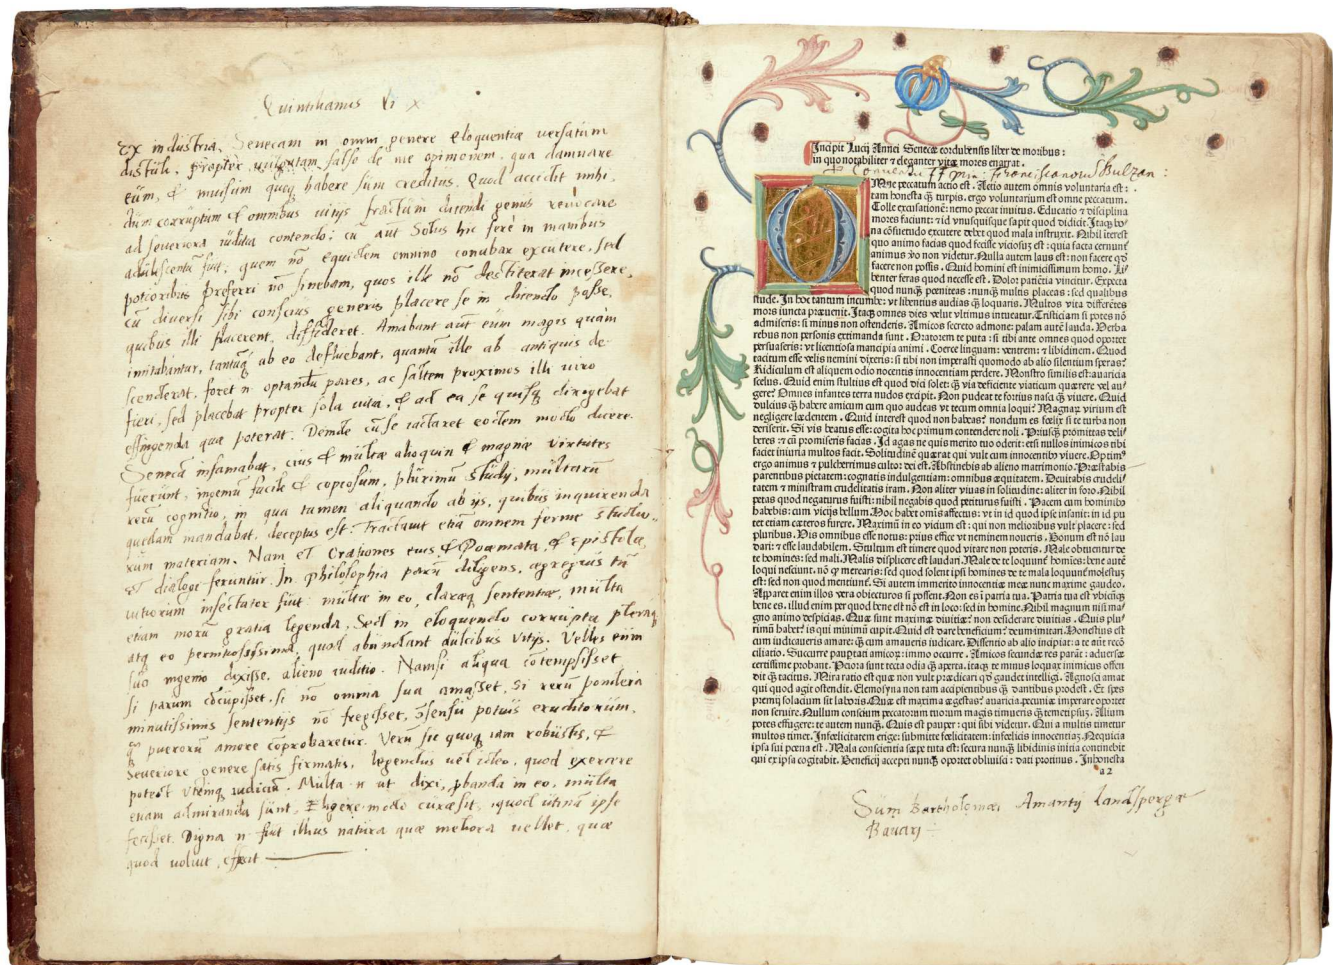 Quintilianus li x
Ex industria Senecam in omni genere eloquentiæ versatum
distuli, propter vulgatam falso de me opinionem, qua damnare
eum, & inuisum quoq habere sum creditus. Quod accidit mihi,
dum corruptum & omnibus vitijs fractum dicendi genus reuocare
ad seueriora iuditia contendo; cũ aut Solus hic ferè in manibus
adulescentũ fuit, quem nõ equidem omnino conabar excutere, sed
potioribus preferri nõ sinebam, quos ille nõ destiterat incessere,
cũ diuersi sibi conscius generis placere se in dicendo posse,
quibus illi placerent, diffideret. Amabant aut eum magis quàm
imitabantur, tantuq ab eo defluebant, quantũ ille ab antiquis de-
scenderat, foret n optandũ pares, ac saltem proximos illi uiro
fieri, sed placebat propter sola uitia, & ad ea se quisq dirigebat
effingenda quæ poterat. Deinde cũ se iactaret eodem modo dicere
Senecã infamabat, cuius & multæ alioquin & magnæ virtutes
fuerunt, ingeniũ facile & copiosum, plurimũ studij, multarũ
rerũ cognitio, in qua tamen aliquando ab ijs, quibus inquirenda
quædam mandabat, deceptus est. Tractauit etiã omnem ferme studio-
rum materiam. Nam et Orationes eius, & Poæmata, & Epistolæ,
et dialogi feruntur. In philosophia parũ diligens, egregius tñ
uitiorum insectator fuit: multæ in eo, claræq sententiæ, multa
etiam morũ gratia legenda. Sed in eloquendo corrupta pleraq
atq eo perniciosissima, quod abundant dulcibus vitijs. Velles eum
suo ingenio dixisse, alieno iuditio. Namsi aliqua cõtempsisset,
si parum cõcupisset, si nõ omnia sua amasset, si rerũ pondera
minutissimis sententijs nõ fregisset, cõsensu potius eruditorum,
q̃ puerorũ amore cõprobaretur. Verũ sic quoq iam robustis, &
Seueriore genere satis firmatis, legendus uel ideo, quod exercere
potest vtrimq iudiciũ. Multa n ut dixi, pbanda in eo, multa
etiam admiranda sunt, Eligere modo curæ sit, quod utinã ipse
fecisset. Digna n fuit illius natura quæ meliora uellet, quæ
quod uoluit, effecit
Incipit Lucij Annei Senecæ cordubensis liber de moribus:
in quo notabiliter ⁊ eleganter vitæ mores enarrat.
Conuentus FF Franciscanorũ Bulzan:
OMne peccatum actio est. Actio autem omnis voluntaria est:
tam honesta q̃ turpis. ergo voluntarium est omne peccatum.
Tolle excusationẽ: nemo peccat inuitus. Educatio ⁊ disciplina
mores faciunt: ⁊ id vnusquisque sapit quod didicit. Itaq bo/
na cõsuetudo excutere debet quod mala instruxit. Nihil iterest
quo animo facias quod fecisse viciosuz est: quia facta cernunt̃
animus ṽo non videtur. Nulla autem laus est: non facere qd̃
facere non possis. Quid homini est inimicissimum homo. Li/
benter feras quod necesse est. Dolor patiẽtia vincitur. Expecta
quod nunq̃ peniteas: nunq̃ multis placeas: sed qualibus
stude. In hoc tantum incumbe: vt libentius audias q̃ loquaris. Multos vita differẽtes
mors iuncta præuenit. Itaq omnes dies velut vltimus intueatur. Tristiciam si potes nõ
admiseris: si minus non ostenderis. Amicos secreto admone: palam autẽ lauda. Verba
rebus non personis extimanda sunt. Oratorem te puta: si tibi ante omnes quod oportet
persuaseris: vt licentiosa mancipia animi. Coerce linguam: ventrem: ⁊ libidinem. Quod
tacitum esse velis nemini dixeris: si tibi non imperasti quomodo ab alio silentium speras?
Ridiculum est aliquem odio nocentis innocentiam perdere. Monstro similis est auaricia
scelus. Quid enim stultius est quod dici solet: q̃ via deficiente viaticum quærere vel au/
gere? Omnes infantes terra nudos excipit. Non pudeat te fortius nasci q̃ viuere. Quid
dulcius q̃ habere amicum cum quo audeas vt tecum omnia loqui? Magnaꝝ virium est
negligere lædentem. Quid interest quod non habeas? nondum es fœlix si te turba non
deriserit. Si vis beatus esse: cogita hoc primum contendere noli. Priusq̃ promittas deli/
beres: ⁊ cũ promiseris facias. Id agas ne quis merito tuo oderit: etsi nullos inimicos tibi
faciet iniuria multos facit. Solitudinẽ quærat qui vult cum innocentib viuere. Optim⁹
ergo animus ⁊ pulcherrimus cultor dei est. Abstinebis ab alieno matrimonio. Præstabis
parentibus pietatem: cognatis indulgentiam: omnibus æquitatem. Deuitabis crudeli/
tatem ⁊ ministram crudelitatis iram. Non aliter viuas in solitudine: aliter in foro. Nihil
petas quod negaturus fuisti: nihil negabis quod petiturus fuisti. Pacem cum hominib
habebis: cum vicijs bellum. Hoc habet omis affectus: vt in id quod ipse insanit: in id pu
tet etiam cæteros furere. Maximũ in eo vicium est: qui non melioribus vult placere: sed
pluribus. Vis omnibus esse notus: prius effice vt neminem noueris. Bonum est nõ lau
dari: ⁊ esse laudabilem. Stultum est timere quod vitare non poteris. Male obtinentur de
te homines: sed mali. Malis displicere est laudari. Male de te loquunt̃ homies: bene autẽ
loqui nesciunt. nõ qd̃ merearis: sed quod solent ipsi homines de te mala loquunt̃ molestuz
est: sed non quod mentiunt̃. Si autem immerito innocentiæ meæ nunc maxime gaudeo.
Apparet enim illos vera obiecturos si possent. Non es i patria tua. Patria tua est vbicũq
bene es. illud enim per quod bene est nõ est in loco: sed in homine. Nihil magnum nisi ma/
gno animo despicias. Quæ sunt maximæ diuitiæ? non desiderare diuitias. Quis plu/
rimũ habet? is qui minimũ cupit. Quid est dare beneficium? deum imitari. Honestius est
cum iudicaueris amare: q̃ cum amaueris iudicare. Dissentio ab alio incipiat: a te autẽ recõ
ciliatio. Succurre paupertati amicoꝝ: immo occurre. Amicos secundæ res parãt: aduersæ
certissime probant. Peiora sunt tecta odia q̃ aperta. itaq te minus loquax inimicus offen
dit q̃ tacitus. Mira ratio est quæ non vult prædicari qd̃ gaudet intelligi. Agnosci amat
qui quod agit ostendit. Elemosyna non tam accipientibus q̃ dantibus prodest. Et spes
premij solacium sit laboris. Quæ est maxima egestas? auaricia. pecuniæ imperare oportet
non seruire. Nullum conscium peccatorum tuorum magis timueris q̃ temetipsuz. Alium
potes effugere: te autem nunq̃. Quis est pauper: qui sibi videtur. Qui a multis timetur
multos timet. Infœlicitatem erige: submitte fœlicitatem: infœlicis innocentiaz. Nequicia
ipsa sui pœna est. Mala conscientia sæpe tuta est: secura nunq̃. libidinis initia continebit
qui exipsa cogitabit. Beneficij accepti nunq̃ oportet obliuisci: dati protinus. Inhonesta
a 2
Sum Bartholomæi Amantij Landspergæ
Bauarj